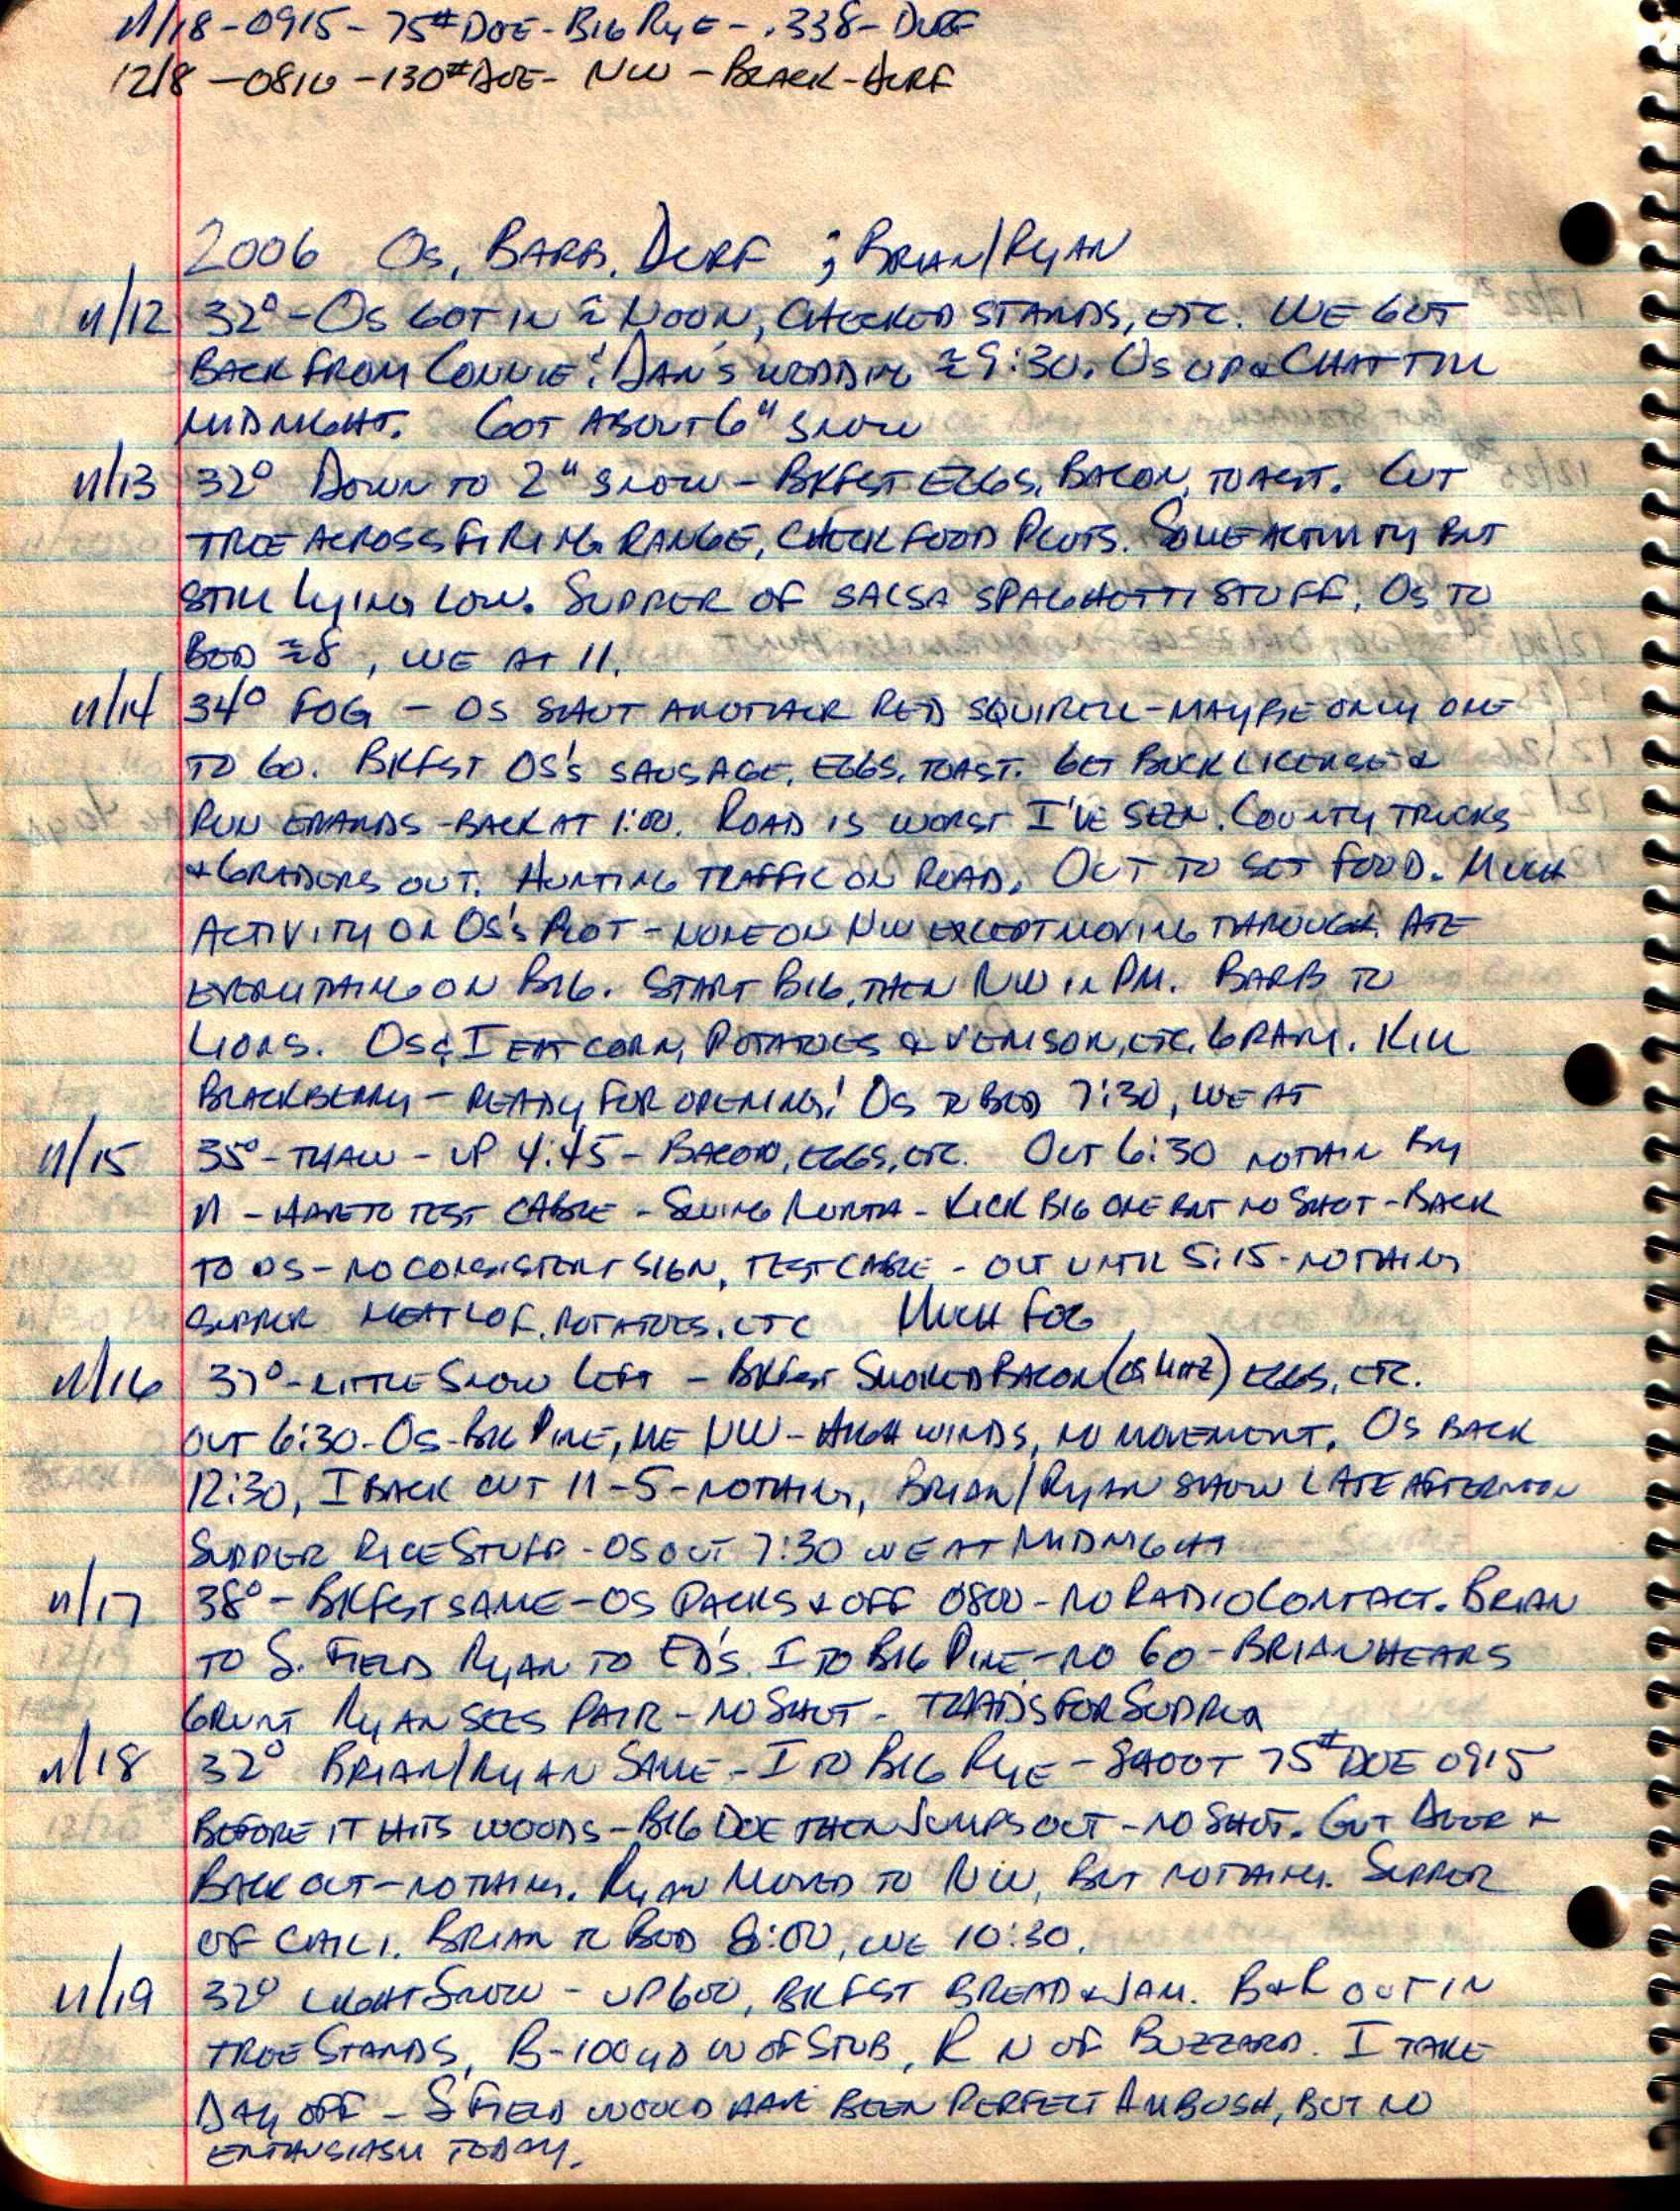 11/18-0915-75# DOE-BIG RYE-.338-DURF
12/8-0810-130# DOE-NW-BLACK-DURF
2006 OS, BARB, DURF ; BRIAN/RYAN
11/12 32°-OS GOT IN ≈ NOON, CHECKED STANDS, ETC. WE GOT
BACK FROM CONNIE & DAN'S WEDDING ≈9:30. OS UP & CHAT TILL
MIDNIGHT. GOT ABOUT 6" SNOW
11/13 32° DOWN TO 2" SNOW-BKFST EGGS, BACON, TOAST. CUT
TREE ACROSS FIRING RANGE, CHECK FOOD PLOTS. SOME ACTIVITY BUT
STILL LYING LOW. SUPPER OF SALSA SPAGHETTI STUFF, OS TO
BED ≈8, WE AT 11.
11/14 34° FOG - OS SHOT ANOTHER RED SQUIRELL-MAYBE ONLY ONE
TO GO. BKFST OS'S SAUSAGE, EGGS, TOAST. GET BUCK LICENSE &
RUN ERRANDS-BACK AT 1:00. ROAD IS WORST I'VE SEEN. COUNTY TRUCKS
& GRADERS OUT. HUNTING TRAFFIC ON ROAD. OUT TO SET FOOD. MUCH
ACTIVITY ON OS'S PLOT-NONE ON NW EXCEPT MOVING THROUGH. ATE
EVERYTHING ON BIG. START BIG, THEN NW IN PM. BARB TO
LIONS. OS & I EAT CORN, POTATOES & VENISON, ETC, GRAM. KILL
BLACKBERRY-READY FOR OPENING! OS TO BED 7:30, WE AT
11/15 35°-THAW-UP 4:45-BACON, EGGS, ETC. OUT 6:30 NOTHIN BY
11-HAVE TO TEST CABLE-SWING NORTH-KICK BIG ONE BUT NO SHOT-BACK
TO OS-NO CONSISTENT SIGN, TEST CABLE-OUT UNTIL 5:15-NOTHING
SUPPER MEATLOF, POTATOES, ETC MUCH FOG
11/16 37°-LITTLE SNOW LEFT-BKFST SMOKED BACON EGGS, ETC.
OUT 6:30-OS-BIG PINE, ME NW-HIGH WINDS, NO MOVEMENT. OS BACK
12:30, I BACK OUT 11-5-NOTHING, BRIAN/RYAN SHOW LATE AFTERNOON
SUPPER RICE STUFF-OS OUT 7:30 WE AT MIDNIGHT
11/17 38°-BKFST SAME-OS PACKS & OFF 0800-NO RADIO CONTACT. BRIAN
TO S. FIELD RYAN TO ED'S. I TO BIG PINE-NO GO-BRIAN HEARS
GRUNT RYAN SEES PAIR-NO SHOT- FOR SUPPER
11/18 32° BRIAN/RYAN SAME-I TO BIG RYE-SHOOT 75# DOE 0915
BEFORE IT HITS WOODS-BIG DOE THEN JUMPS OUT-NO SHOT. GUT DEER &
BACK OUT-NOTHING. RYAN MOVED TO NW, BUT NOTHING. SUPPER
OF CHILI. BRIAN TO BED 8:00, WE 10:30.
11/19 32° LIGHT SNOW-UP 600, BKFST BREAD & JAM. B&R OUT IN
TREE STANDS, B-100 YD W OF STUB, R N OF BUZZARD. I TAKE
DAY OFF-S FIELD WOULD HAVE BEEN PERFECT AMBUSH, BUT NO
ENTHUSIASM TODAY.